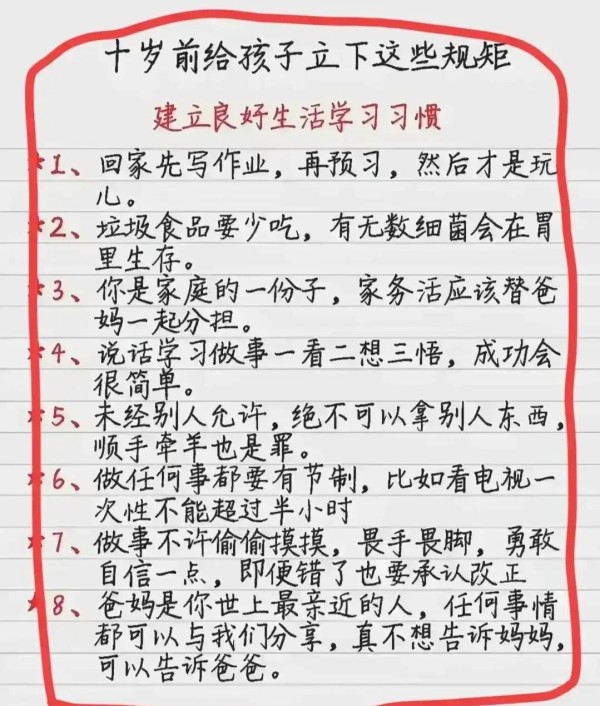 十岁前给孩子立下这些规矩
建立良好生活学习习惯
★1、回家先写作业，再预习，然后才是玩
儿。
★2、垃圾食品要少吃，有无数细菌会在胃
里生存。
★3、你是家庭的一份子，家务活应该替爸
妈一起分担。
★4、说话学习做事一看二想三悟，成功会
很简单。
★5、未经别人允许，绝不可以拿别人东西，
顺手牵羊也是罪。
★6、做任何事都要有节制，比如看电视一
次性不能超过半小时
★7、做事不许偷偷摸摸，畏手畏脚，勇敢
自信一点，即便错了也要承认改正
★8、爸妈是你世上最亲近的人，任何事情
都可以与我们分享，真不想告诉妈妈，
可以告诉爸爸。